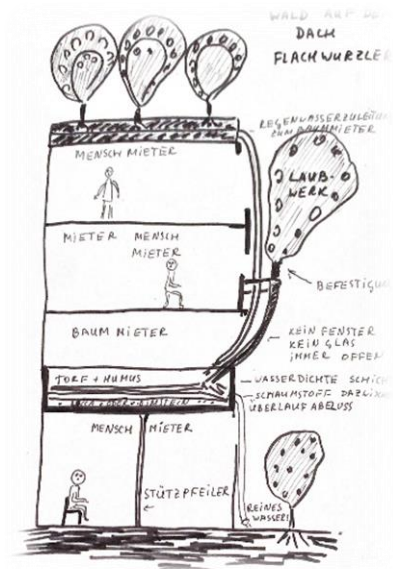 WALD AUF DE
DACH
FLACHWURZLER
REGENWASSERZULEITU
ZUM BAUMMIETER
MENSCH MIETER
LAUB-
WERK
MIETER MENSCH
MIETER
BEFESTIGU
BAUM MIETER
KEIN FENSTER
KEIN GLAS
IMMER OFFEN
TORF + HUMUS
WASSERDICHTE SCHICH
SCHAUMSTOFF DAZWISC
ÜBERLAUF ABFLUSS
MENSCH MIETER
STÜTZPFEILER
REINES
WASSER!